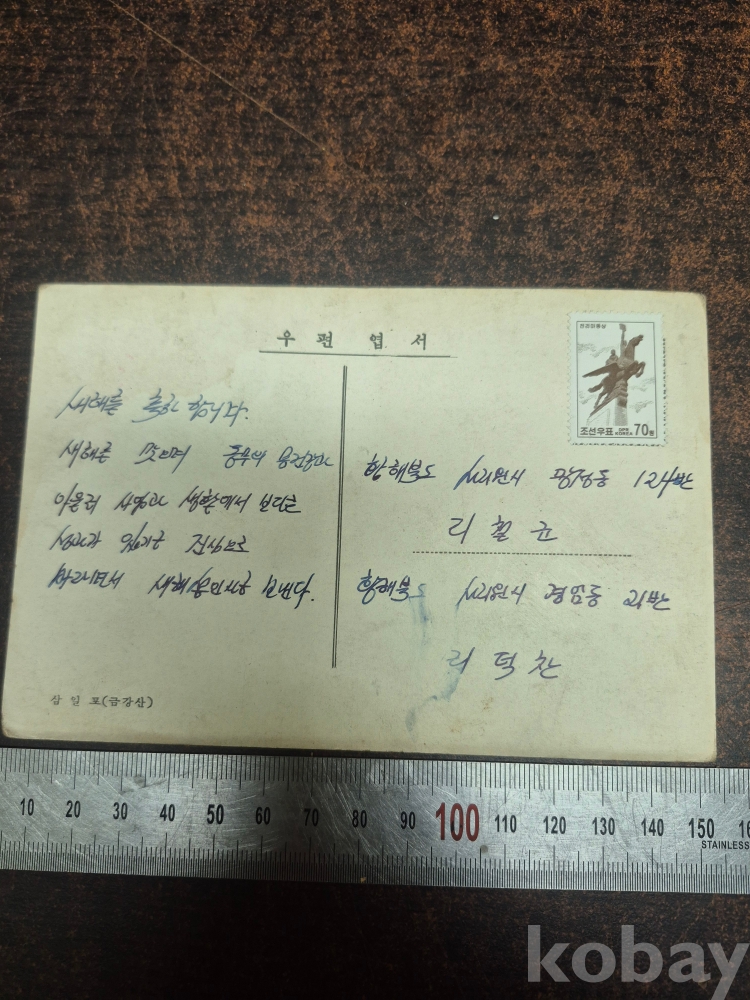 우편엽서
천리마동상
조선우표 DPR KOREA 70전
새해를 축하 합니다.
새해를 맞으며 동무의 건강과
아울러 사업과 생활에서 보다큰
성과가 있기를 진심으로
바라면서 새해 보낸다.
황해북도 사리원시 동 12반
리 철 균
황해북도 사리원시 경암동 반
리 덕 찬
삼일포(금강산)
10 20 30 40 50 60 70 80 90 100 110 120 130 140 150
STAINLESS
kobay